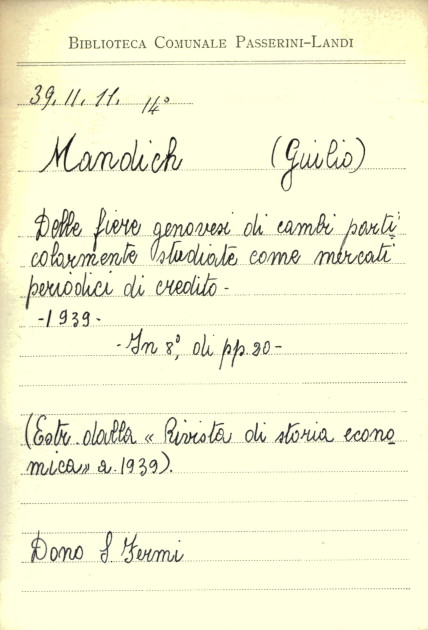 BIBLIOTECA COMUNALE PASSERINI-LANDI
39. II. 11. 14°
Mandich (Giulio)
Delle fiere genovesi di cambi parti
colarmente studiate come mercati
periodici di credito -
- 1939 -
- In 8°, di pp. 20 -
(Estr. dalla « Rivista di storia econo
mica » a. 1939).
Dono S. Fermi